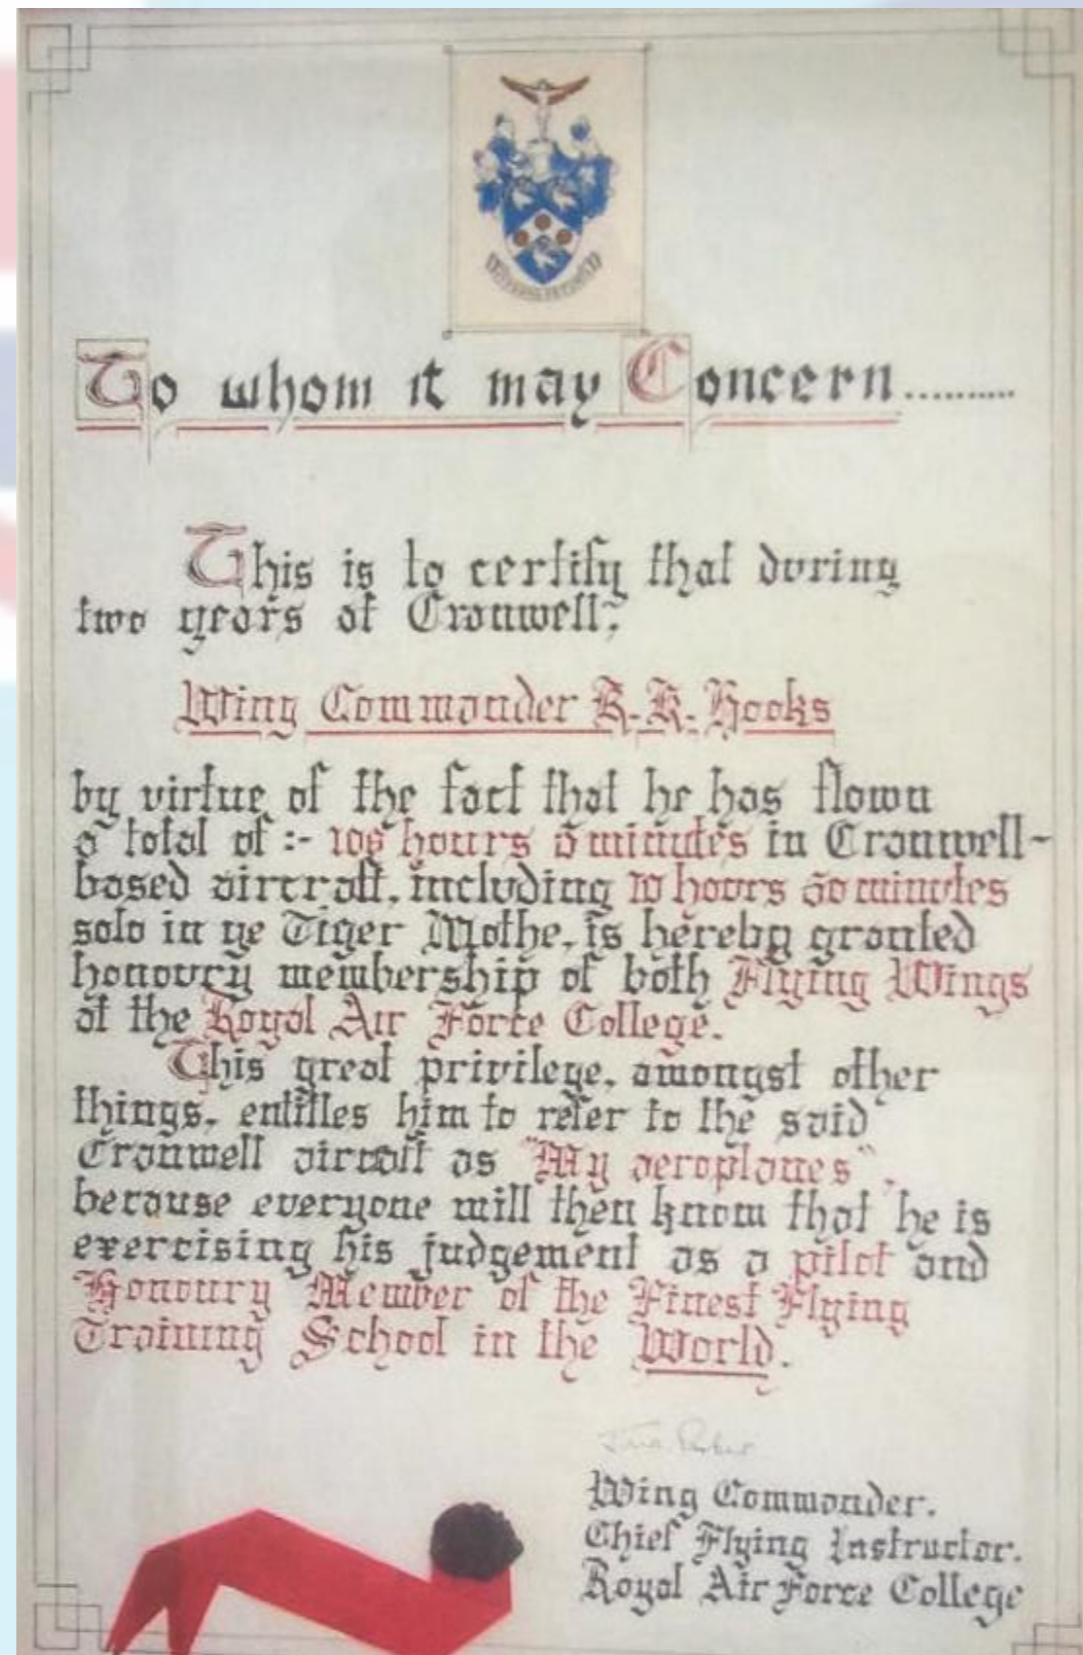 To whom it may Concern.........
This is to certify that during
two years at Cranwell,
Wing Commander R.K. Hooks
by virtue of the fact that he has flown
a total of :- hours 5 minutes in Cranwell-
based aircraft, including 10 hours 50 minutes
solo in ye Tiger Mothe, is hereby granted
honoury membership of both Flying Wings
at the Royal Air Force College.
This great privilege, amongst other
things, entitles him to refer to the said
Cranwell aircraft as "My aeroplanes",
because everyone will then know that he is
exercising his judgement as a pilot and
Honoury Member of the Finest Flying
Training School in the World.
Wing Commander.
Chief Flying Instructor.
Royal Air Force College